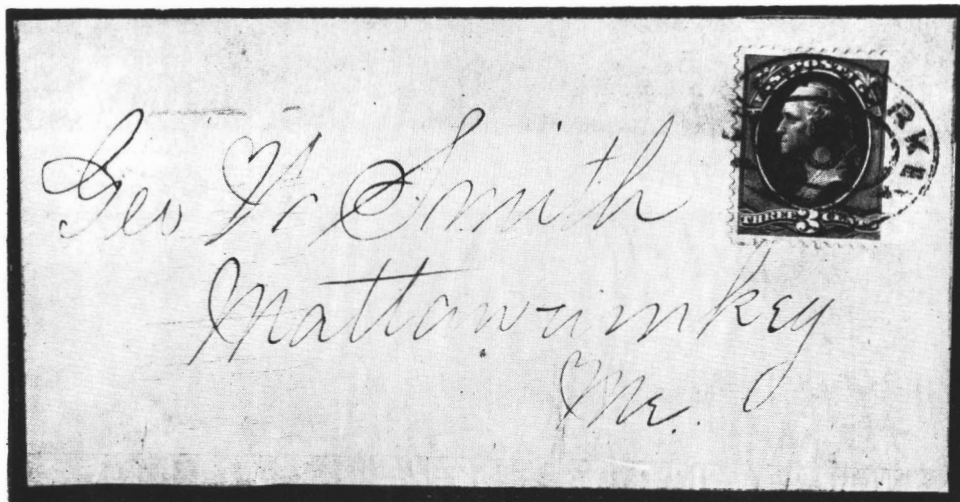 Geo W Smith
Mattawaumkey
Me.
U.S. POSTAGE
THREE 3 CENTS
RKE